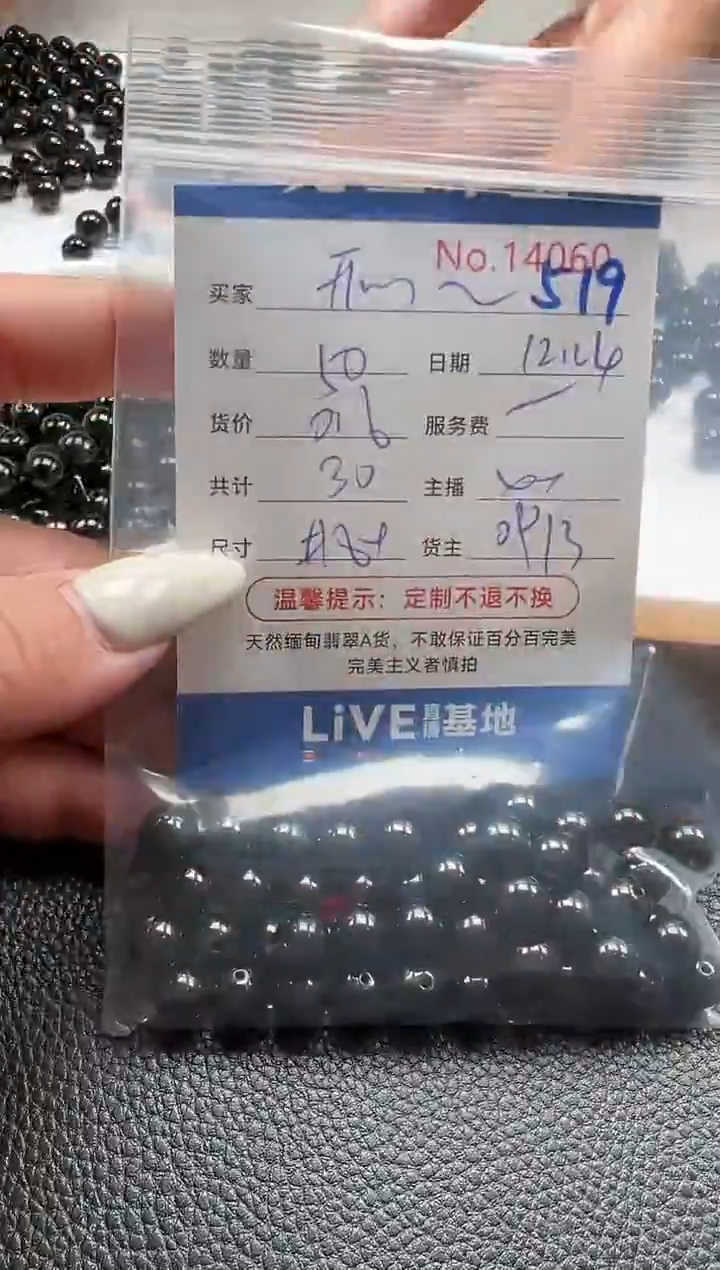 No.14060
买家 519
数量 50 日期 12.24
货价 服务费
共计 30 主播
尺寸 货主
温馨提示：定制不退不换
天然缅甸翡翠A货、不敢保证百分百完美
完美主义者慎拍
LiVE直播基地